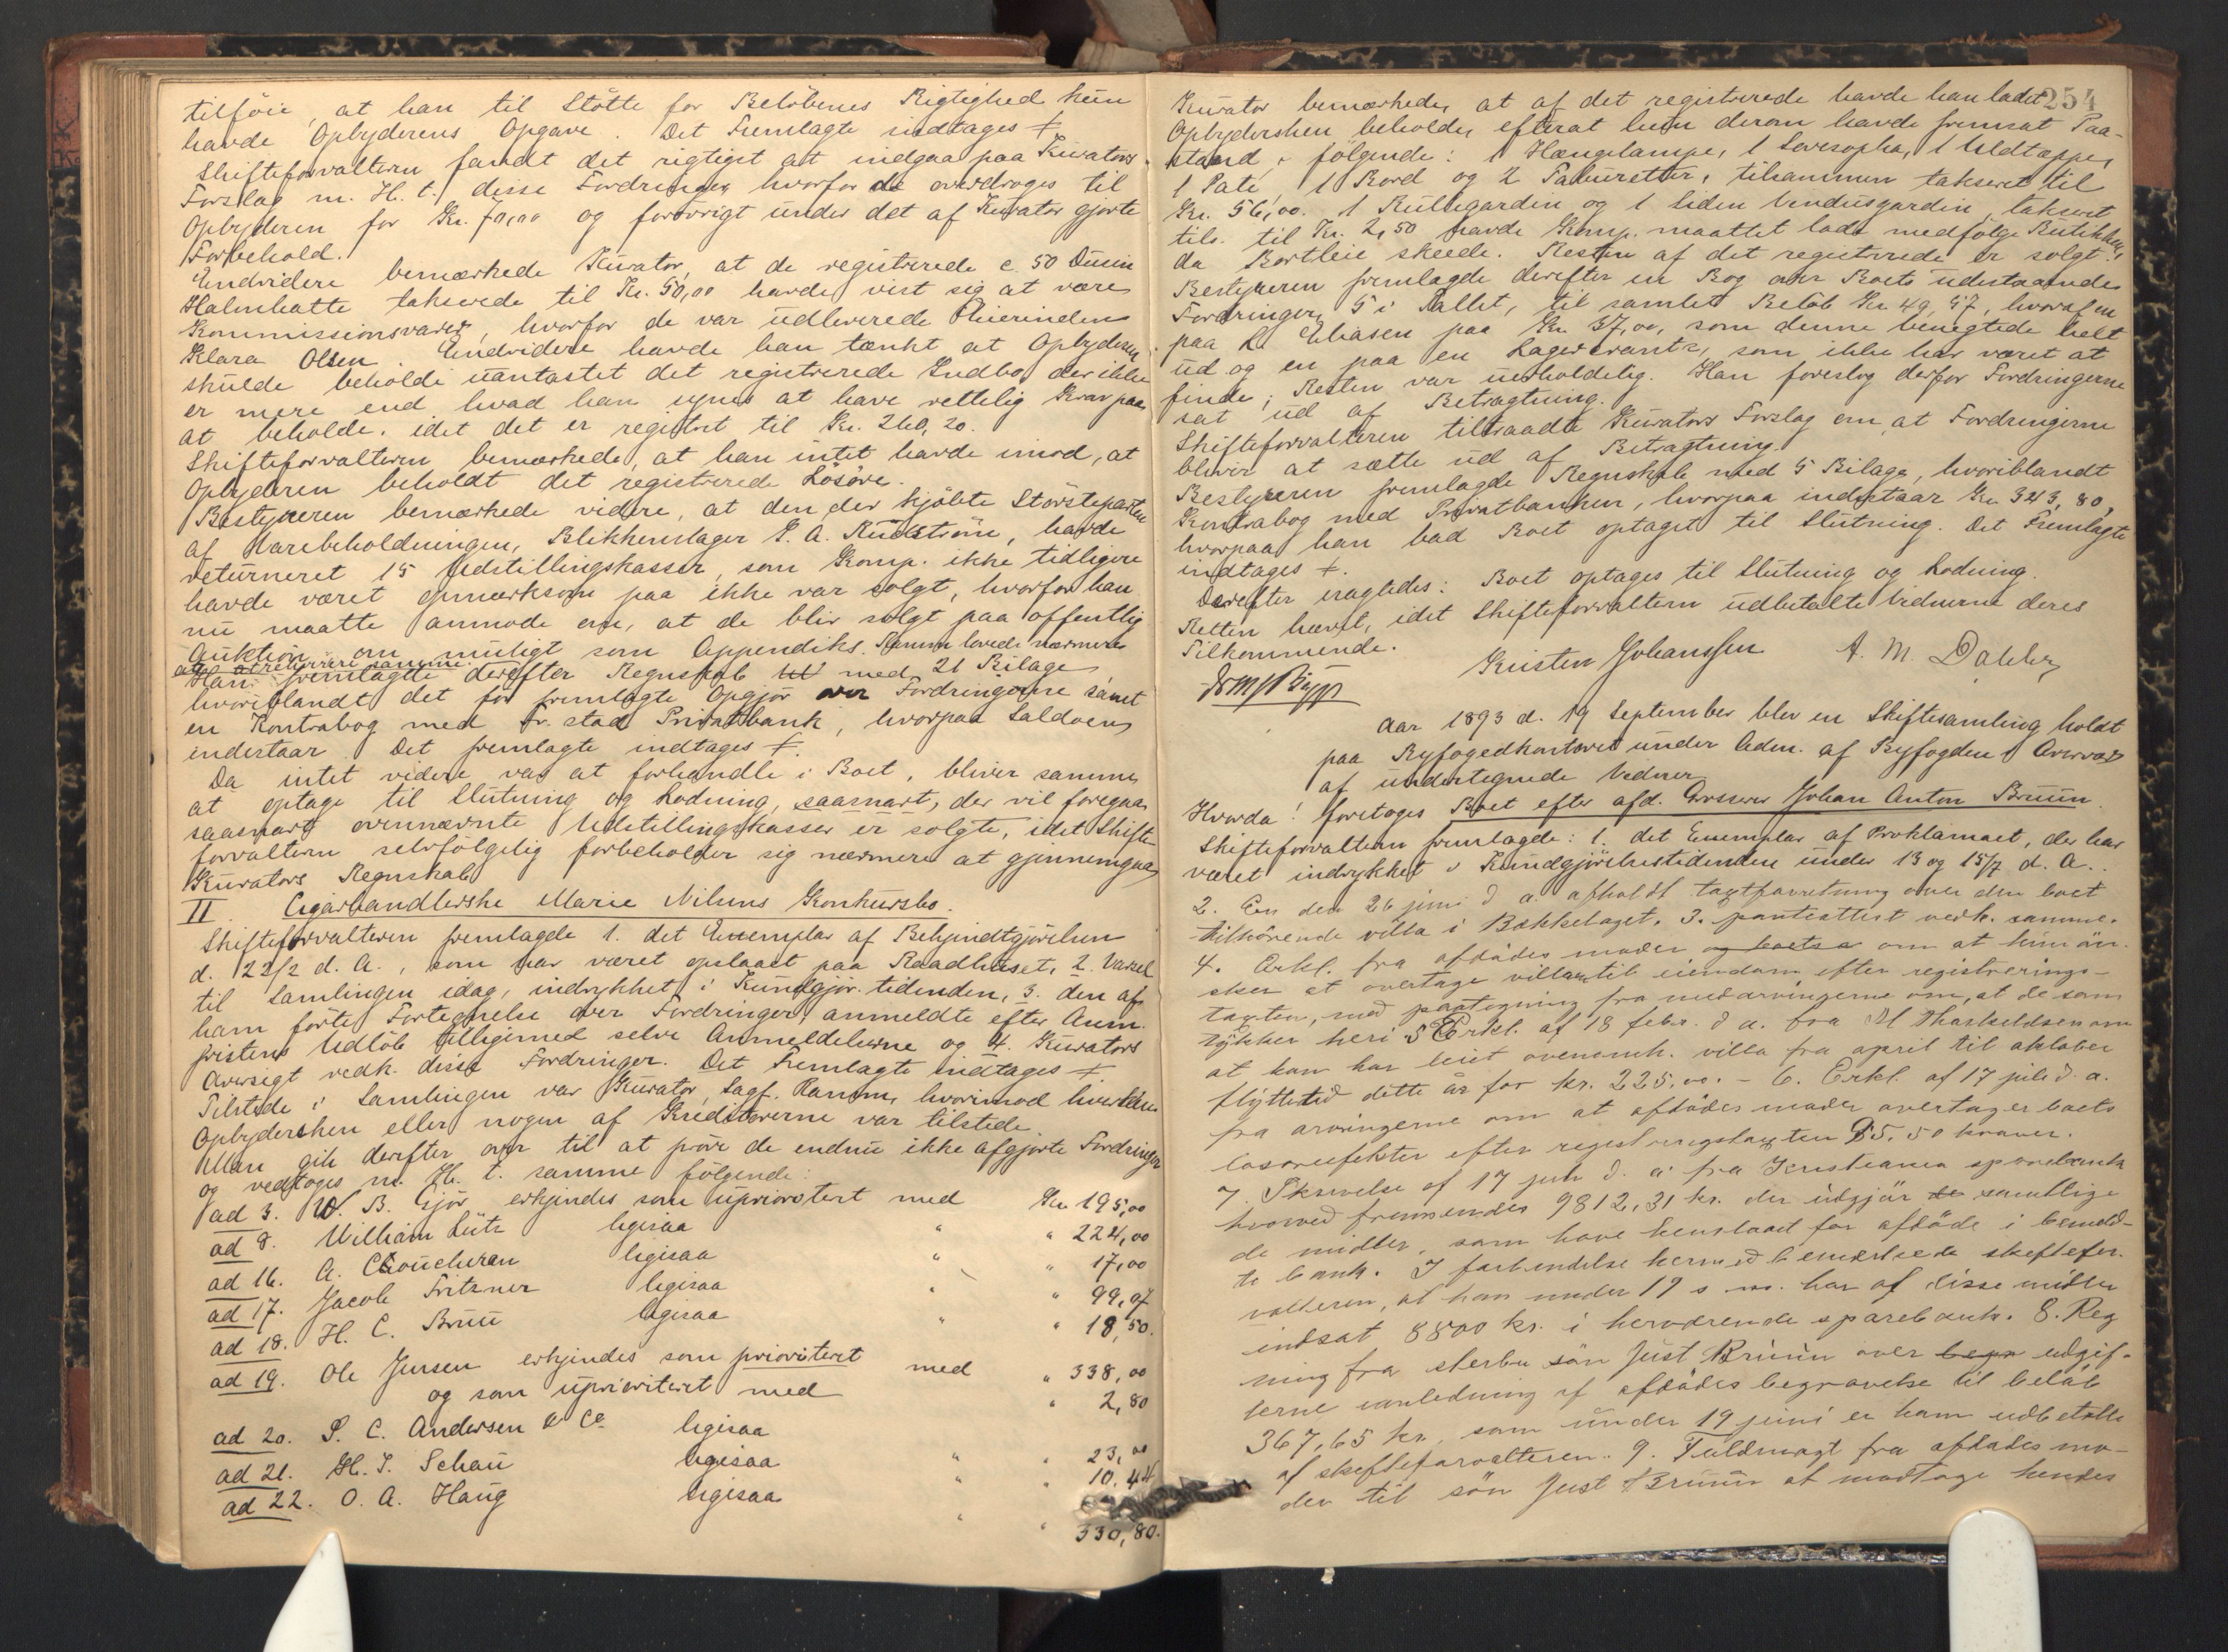 tilföie, at han til Stötte for Belöbenes Rigtighed kun
havde Opbyderens Opgave. Det Fremlagte indtages ⨍.
Skifteforvalteren fandt det rigtigst at indgaa paa Kurators
Forslag m. H. t. disse Fordringer, hvorfor de overdroges til
Opbyderen for Kr. 70,00 og forövrigt under det af Kurator gjorte
Forbehold.
Endvidere bemærkede Kurator, at de registrerede c. 50 Dusin
Halmhatte takserede til Kr. 50,00 havde vist sig at være
Kommissionsvarer, hvorfor de var udleverede Eierinden
Klara Olsen. Endvidere havde han tænkt at Opbyderen
skulde beholde uantastet det registrerede Indbo, der ikke
er mere end hvad han synes at have rettelig Krav paa
at beholde, idet det er registrt til Kr. 260,20.
Skifteforvalteren bemærkede, at han intet havde imod, at
Opbyderen beholdt det registrerede Lösöre.
Bestyreren bemærkede videre, at den, der kjöbte Störsteparten
af Varebeholdningen, Blikkenslager E. A. Rudström, havde
returneret 15 Udstillingskasser, som Komp. ikke tidligere
havde været opmærksom paa ikke var solgt, hvorfor han
nu maatte anmode om, at de blir solgt paa offentlig
Auktion om muligt som Appendiks. Komp. lovede nærmere
at rekvirere samme.
Han fremlagde derefter Regnskab med 21 Bilage
hvoriblandt det för fremlagte Opgjör over Fordringerne samt
en Kontrabog med Fr. stad Privatbank, hvorpaa Saldoen
indestaar. Det fremlagte indtages ⨍.
Da intet videre var at forhandle i Boet, bliver samme
at optage til Slutning og Lodning, saasnart, der vil foregaa
saasnart ovennævnte Udstillingskasser er solgte, idet Skifte-
forvalteren selvfölgelig forbeholder sig nærmere at gjennemgaa
Kurators Regnskab
II. Cigarhandlerske Marie Nilsens Konkursbo.
Skifteforvalteren fremlagde 1. det Exemplar af Bekjendtgjörelsen
d. 22/2 d. A., som har været opslaaet paa Raadhuset, 2. Varsel
til Samlingen idag, indrykket i Kundgjör. tidenden, 3. den af
ham förte Fortegnelse over Fordringer, anmeldte efter Anm.
fristens Udlöb tilligemed selve Anmeldelserne og 4. Kurators
Oversigt vedk. disse Fordringer. Det Fremlagte indtages ⨍
Tilstede i Samlingen var Kurator, Sagf. Hansen, hvorimod hverken
Opbydersken eller nogen af Kreditorerne var tilstede.
Man gik derefter over til at pröve de endnu ikke afgjorte Fordringer
og vedtoges m. H. t. samme fölgende:
ad 3. W. B. Gjör erkjendes som uprioritert med Kr. 195,00
ad 8. William Lütz ligesaa " " 224,00
ad 16. A. Choucheron ligesaa " " 17,00
ad 17. Jacob Fritzner ligesaa " " 99,97
ad 18. H. C. Bruu ligesaa " " 18,50.
ad 19. Ole Jensen erkjendes som prioriteret med " 338,00
og som uprioriteret med " 2,80
ad 20. P. C. Andersen & Co ligesaa " " 23,00
ad 21. H. J. Schau ligesaa " " 10,44
ad 22. O. A. Haug ligesaa " " 330,80.
254
Kurator bemærkede, at af det registrerede havde han ladet
Opbydersken beholde, efterat hun derom havde fremsat Paa-
stand, fölgende: 1 Hængelampe, 1 Lovesopha, 1 Uldtæppe,
1 Paté, 1 Bord og 2 Taburetter, tilsammen takseret til
Kr. 56,00. 1 Rullegardin og 1 liden Vinduesgardin, takseret
tils. til Kr. 2,50 havde Komp. maattet lade medfölge Butikken,
da Bortleie skeede. Resten af det registrerede er solgt.
Bestyreren fremlagde derefter en Bog over Boets udestaaende
Fordringer, 5 i Tallet, til samlet Belöb Kr. 49,57, hvoraf en
paa L. Eliasen paa Kr. 37,00, som denne benegtede helt
ud og en paa en Lagercrantz, som ikke har været at
finde; Resten var uerholdelig. Han foreslog derfor Fordringerne
sat ud af Betragtning.
Skifteforvalteren tiltraadte Kurators Forslag om, at Fordringerne
bliver at sætte ud af Betragtning.
Bestyreren fremlagde Regnskab med 5 Bilage, hvoriblandt
Kontrabog med Privatbanken, hvorpaa indestaar Kr. 343,80,
hvorpaa han bad Boet optaget til Slutning. Det Fremlagte
indtages ⨍.
Derefter eragtedes: Boet optages til Slutning og Lodning.
Retten hævet, idet Skifteforvalteren udbetalte Vidnerne deres
Tilkommende.
Kristen Johanssen A. M. Dahler
Aar 1893 d. 19 September blev en Skiftesamling holdt
paa Byfogedkontoret under Adm. af Byfogden i Overvær
af undertegnede Vidner
Hvorda! foretoges Boet efter afd. Grosserer Johan Anton Bruun.
Skifteforvalteren fremlagde: 1. det Exemplar af Proklamaet, der har
været indrykket i Kundgjörelsestidenden under 13 og 15/7 d. A..
2. En den 26 juni d a. afholdt taxtforretning over den boet
tilhörende villa i Bækkelaget. 3. pantattest vedk. samme.
4. Erkl. fra afdödes moder og boets om at hun ön-
sker at overtage villaen til eiendom efter registrerings-
taxten, med paategning fra medarvingerne om, at de sam
tykker heri 5 Erkl. af 18 febr. d a. fra M Thorkildsen om
at han har leiet ovenomh. villa fra april til oktober
flyttetid dette år for kr. 225,00. - 6. Erkl. af 17 juli d. a.
fra arvingerne om at afdödes moder overtager boets
lösöreefekter efter registreringstaxten 85,50 kroner.
7. Skrivelse af 17 juli d. a. fra Kristiania sparebank
hvorved fremsendes 9812,31 kr. der udgjör de samtlige
de midler, som have henstaaet for afdöde i bemeld-
te bank. I forbindelse hermed bemerkede skiftefor-
valteren, at han under 19 s. m. har af disse midler
indsat 8800 kr. i herværende sparebank. 8. Reg
ning fra sterbo sön Just Bruun over begr udgif-
terne i anledning af afdödes begravelse til belöb
367,65 kr., som under 19 juni er ham udbetalte
af skifteforvalteren. 9. Fuldmagt fra afdödes mo-
der til sön Just Bruun at modtage hendes